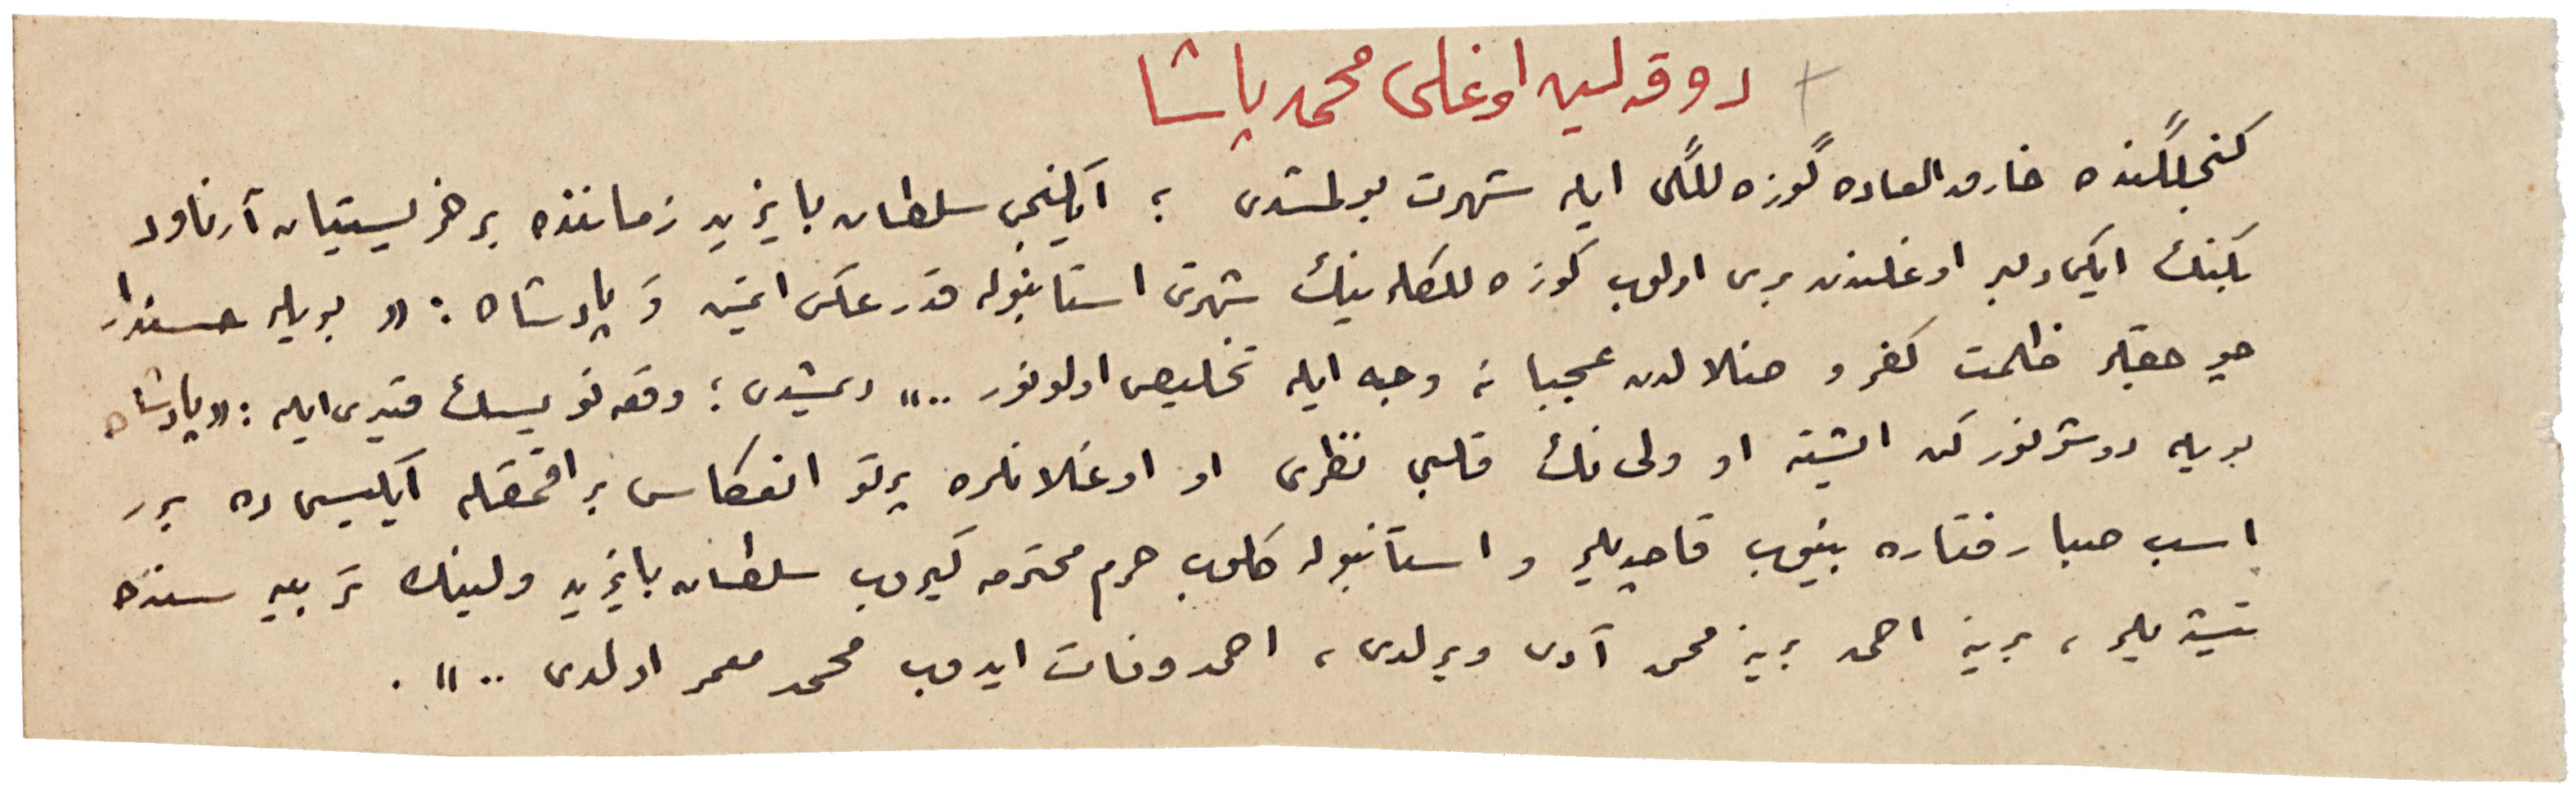 دوقه لین اوغلی محمد پاشا
كنجلگنده خارق العاده گوزه للگی ایله شهرت بولمشدی ؛ ایكنجی سلطان بایزید زماننده بر خریستیان آرناود
بكنك ایكی دلبر اوغلندن بری اولوب كوزه للكلرینك شهرتی استانبوله قدر عكس ایتمش و پادشاه : « بویله حسندار
جوجقلر ظلمت كفر و ضلالدن عجبا نه وجه ایله تخلیص اولونور .. » دیمشدی ؛ وقعه نویسك قیدی ایله : « پادشاه
بویله دوشونوركن ایشته او ولی نك قلبی نظری او اوغلانلره پرتو انعكاس براقمقله ایكیسی ده برر
اسب صبا رفتاره بینوب قاچدیلر و استانبوله كلوب حرم محترمه گیروب سلطان بایزید ولینك تربیه سنده
یتیشدیلر ، برینه احمد برینه محمد آدی ویرلدی ، احمد وفات ایدوب محمد معمر اولدی .. » .